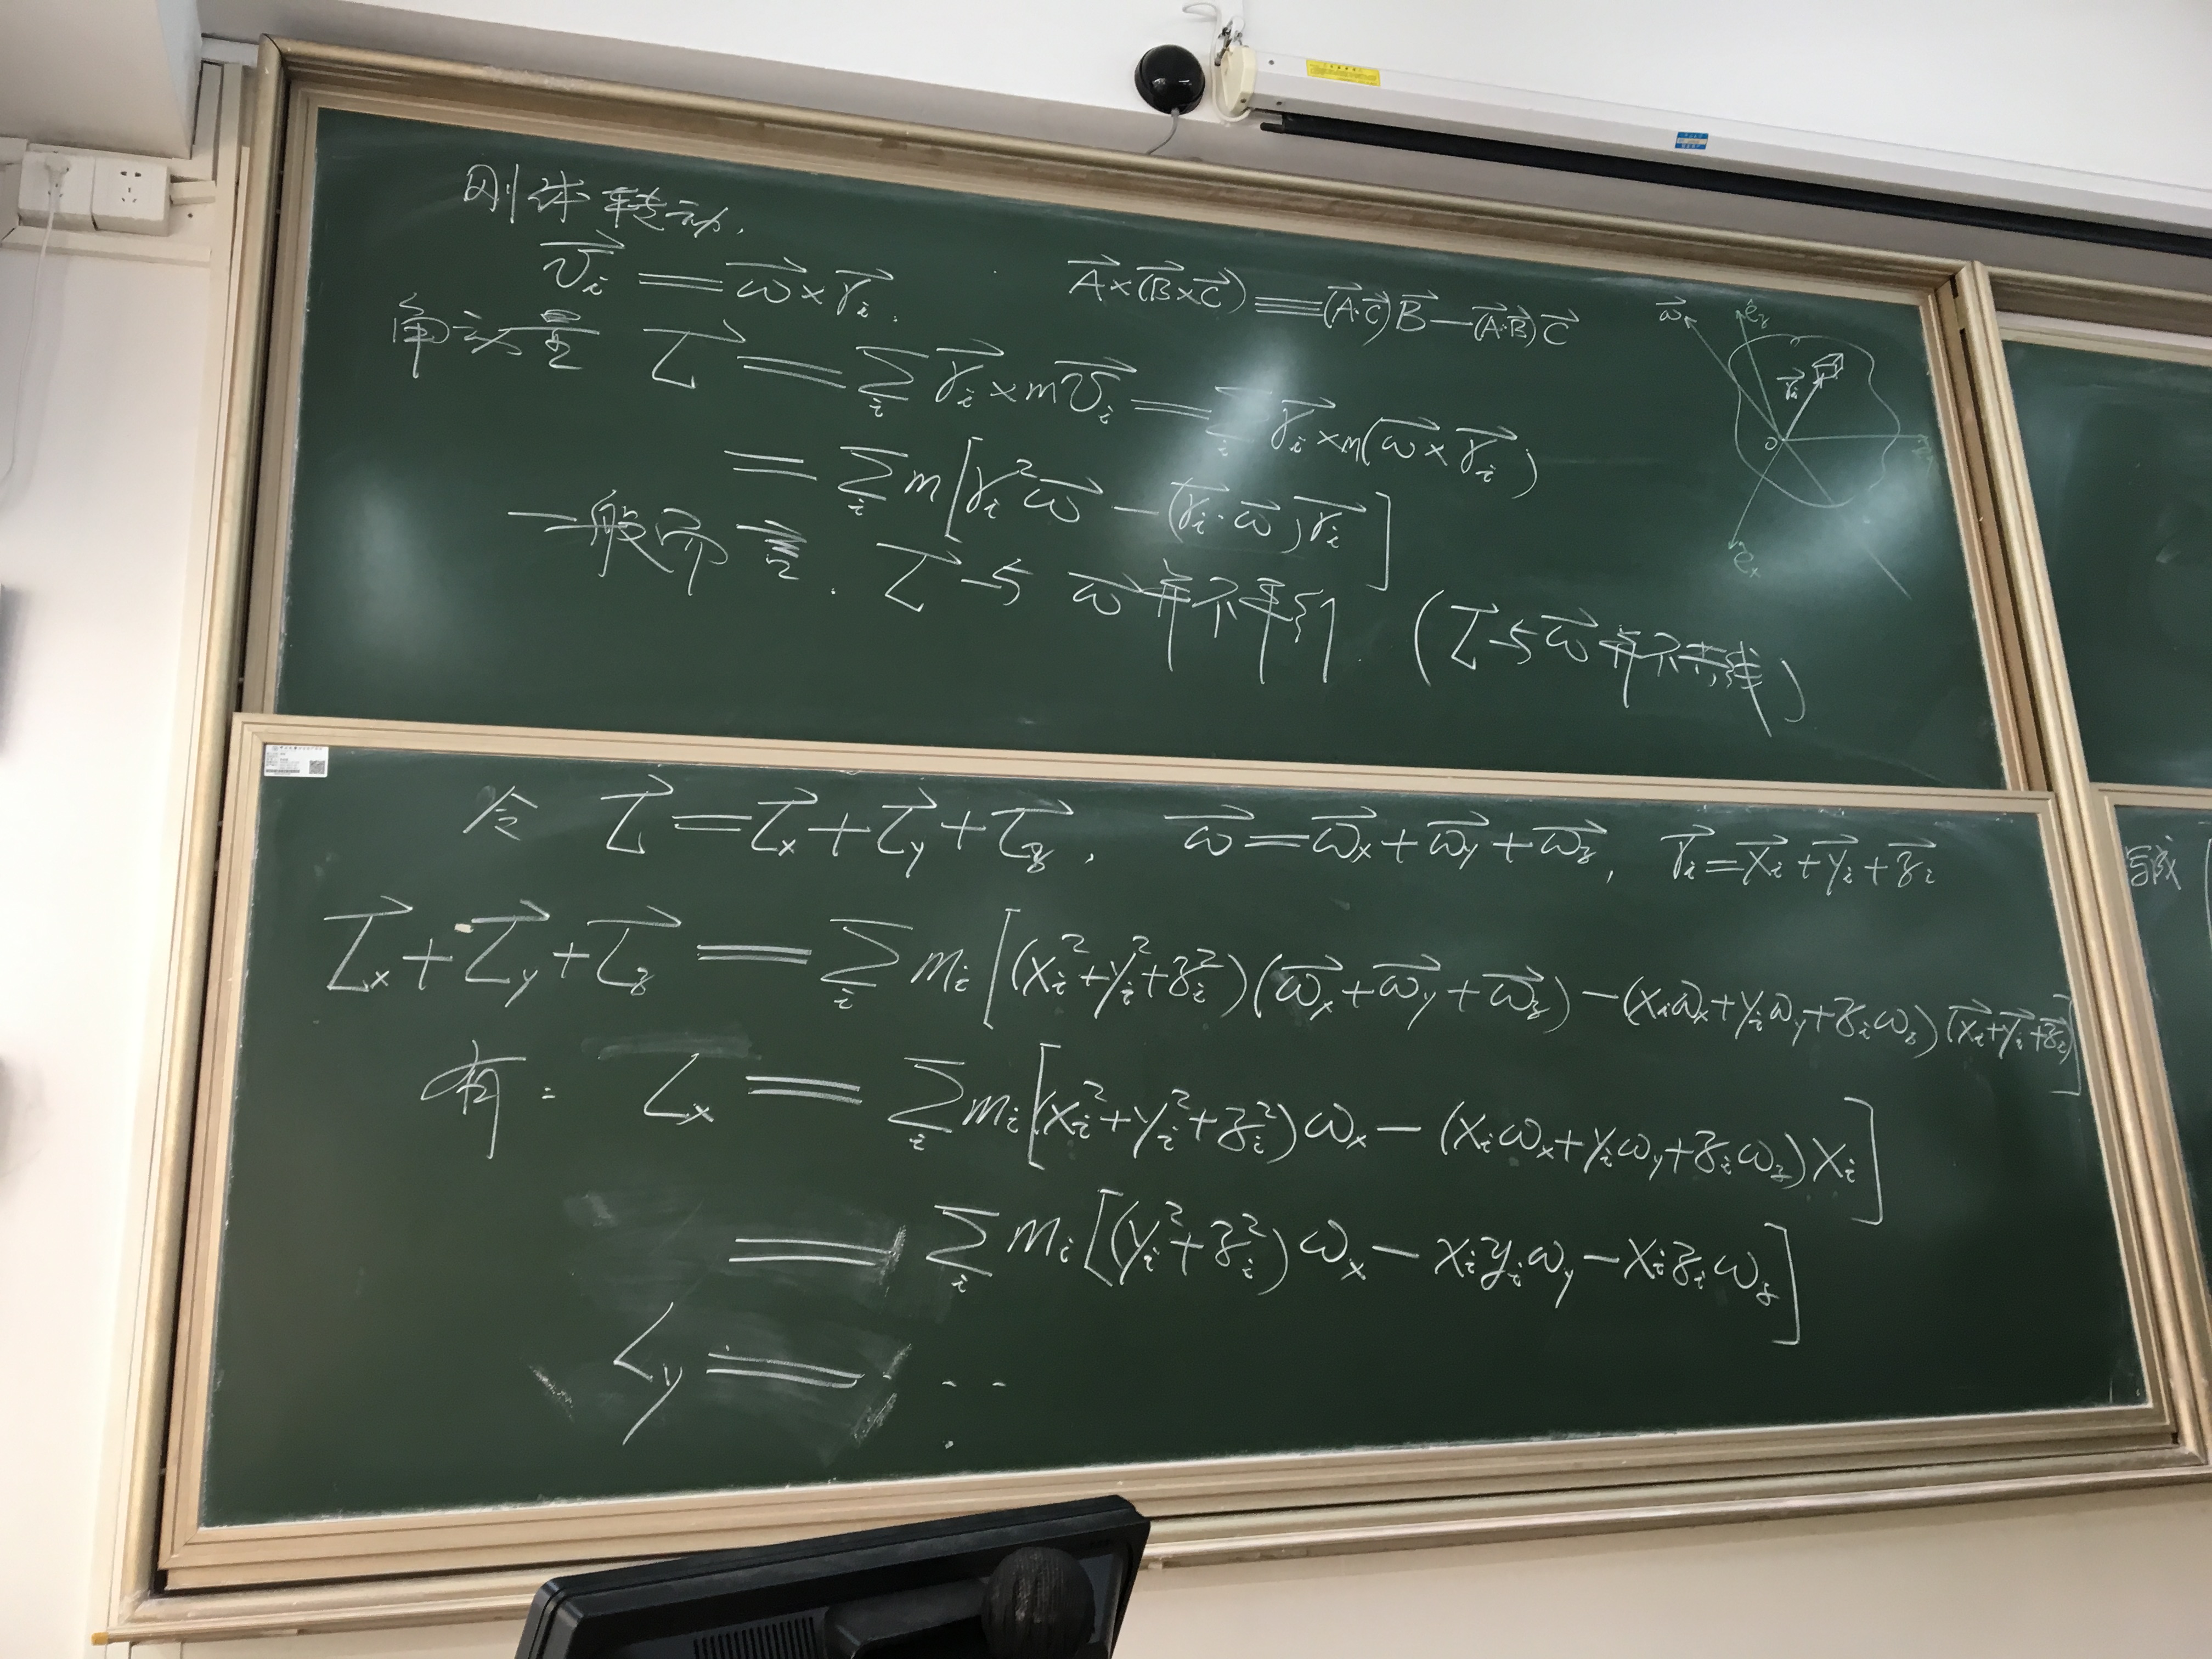 刚体转动.
$\vec{v}_i = \vec{\omega} \times \vec{r}_i.$
$\vec{A} \times (\vec{B} \times \vec{C}) = (\vec{A} \cdot \vec{C})\vec{B} - (\vec{A} \cdot \vec{B})\vec{C}$
角动量 $\vec{L} = \sum_i \vec{r}_i \times m\vec{v}_i = \sum_i \vec{r}_i \times m(\vec{\omega} \times \vec{r}_i)$
$= \sum_i m[r_i^2 \vec{\omega} - (\vec{r}_i \cdot \vec{\omega})\vec{r}_i]$
一般而言. $\vec{L}$ 与 $\vec{\omega}$ 并不平行. ($\vec{L}$ 与 $\vec{\omega}$ 并不共线)
$\vec{\omega}$
$\vec{e}_z$
$\vec{r}_i$
O
$\vec{e}_x$
令 $\vec{L} = \vec{L}_x + \vec{L}_y + \vec{L}_z, \vec{\omega} = \vec{\omega}_x + \vec{\omega}_y + \vec{\omega}_z, \vec{r}_i = \vec{x}_i + \vec{y}_i + \vec{z}_i$
$\vec{L}_x + \vec{L}_y + \vec{L}_z = \sum_i m_i[(x_i^2 + y_i^2 + z_i^2)(\vec{\omega}_x + \vec{\omega}_y + \vec{\omega}_z) - (x_i\omega_x + y_i\omega_y + z_i\omega_z)(\vec{x}_i + \vec{y}_i + \vec{z}_i)]$
有: $L_x = \sum_i m_i[(x_i^2 + y_i^2 + z_i^2)\omega_x - (x_i\omega_x + y_i\omega_y + z_i\omega_z)x_i]$
$= \sum_i m_i[(y_i^2 + z_i^2)\omega_x - x_i y_i \omega_y - x_i z_i \omega_z]$
$L_y = \cdots$
写成